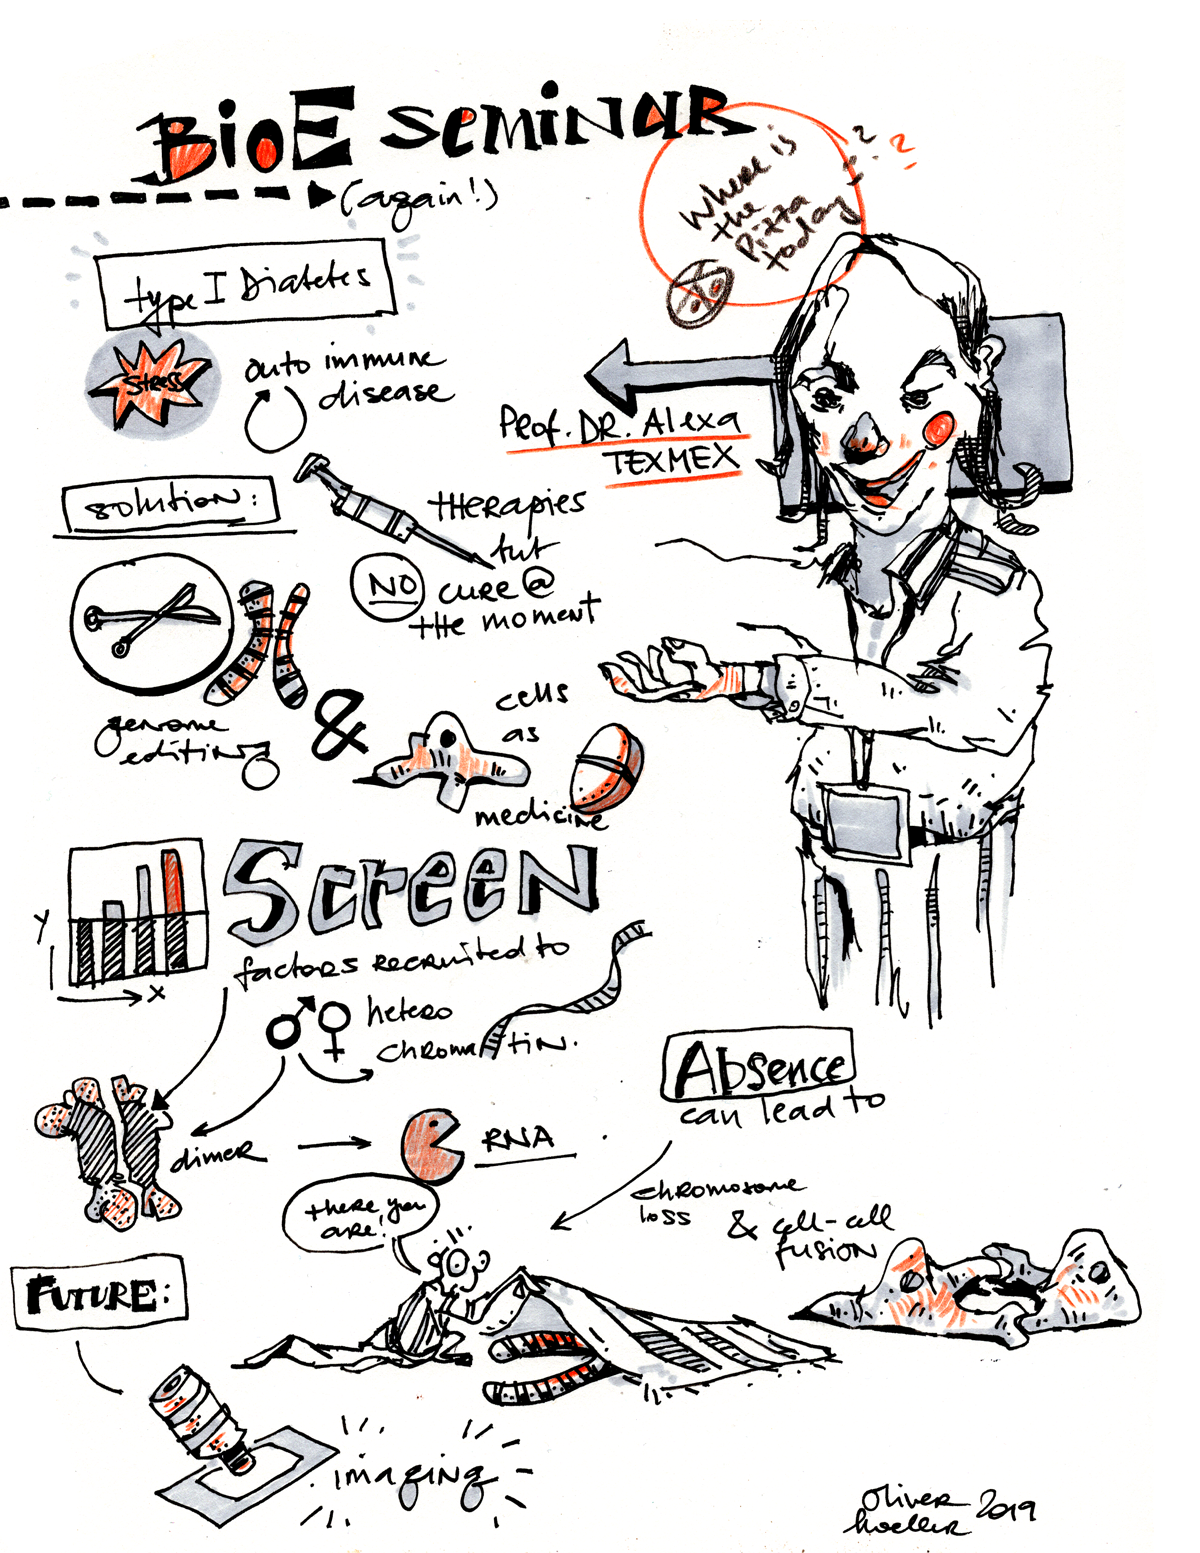 BioE seminar
(again!)
Where is
the
Pizza
today
? ?
type I Diabetes
stress
auto immune
disease
Prof. DR. Alexa
TEXMEX
solution:
therapies
but
NO cure @
the moment
genome
editing
&
cells
as
medicine
Screen
Y
X
factors recruited to
hetero
chromatin.
dimer
RNA
Absence
can lead to
chromosome
loss
& cell-cell
fusion
there you
are!
Future:
imaging
oliver
hoeller 2019